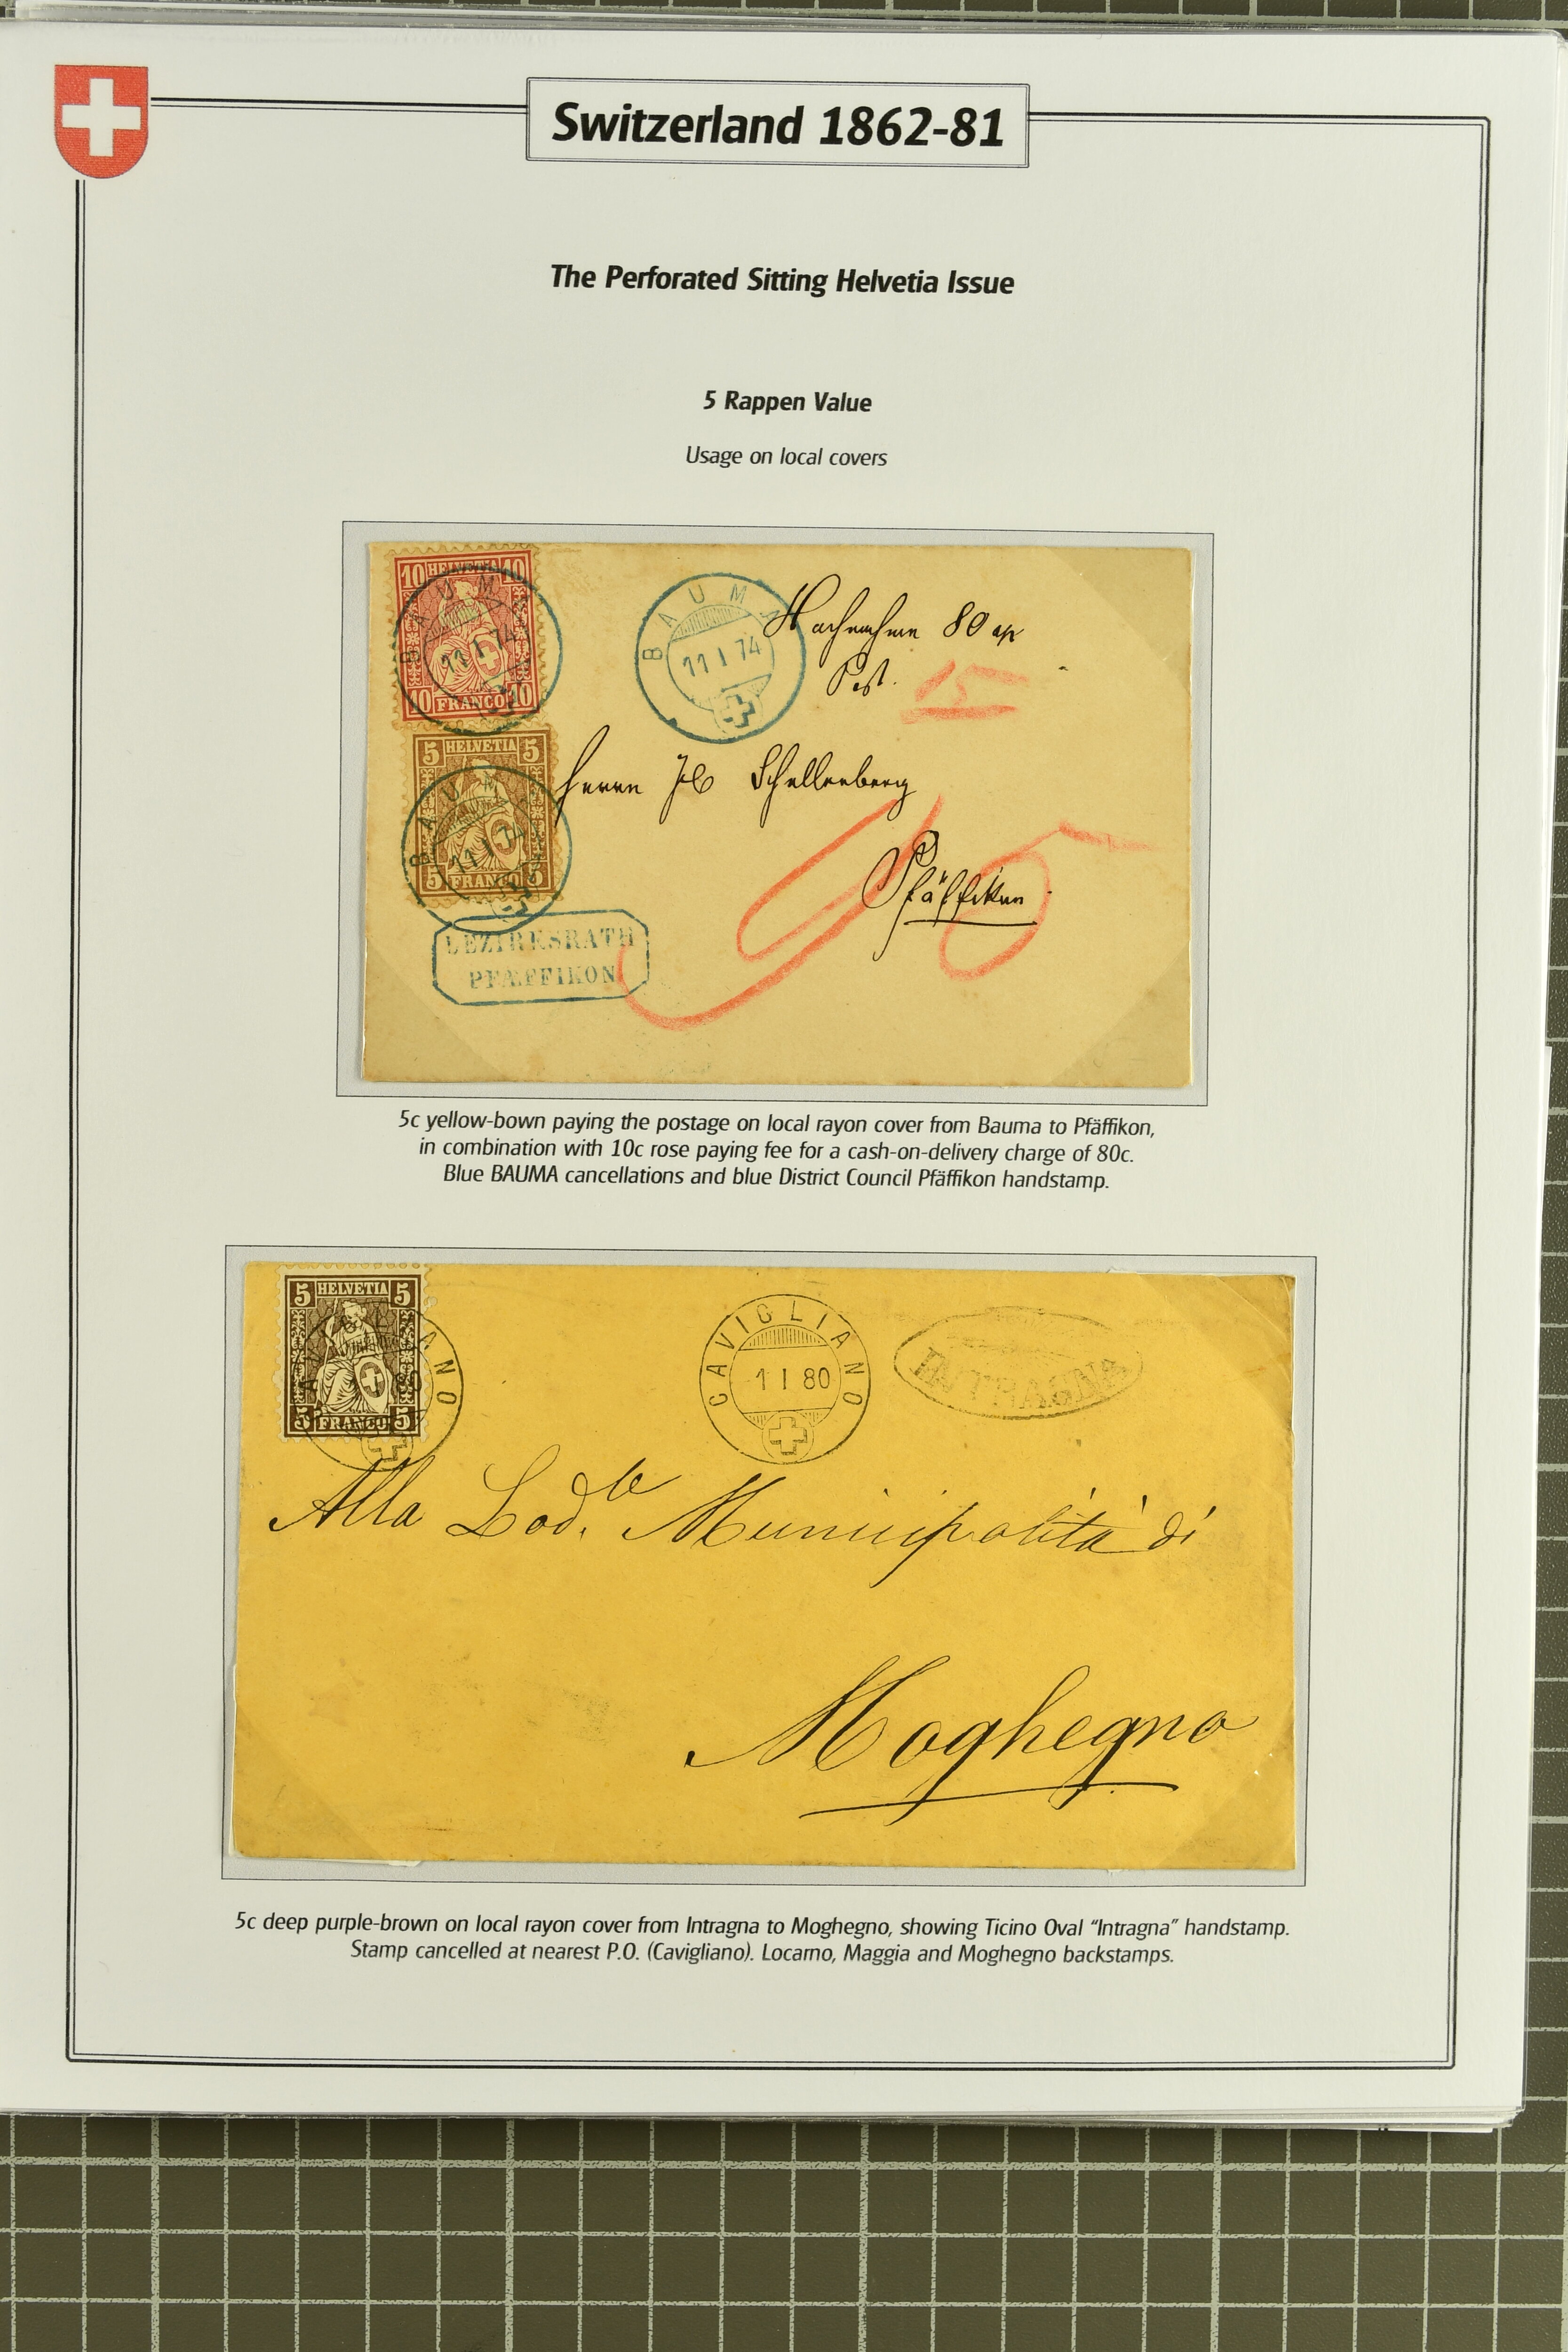 Switzerland 1862-81
The Perforated Sitting Helvetia Issue
5 Rappen Value
Usage on local covers
10 HELVETIA 10
10 FRANCO 10
BAUMA
11 I 74
BAUMA
11 I 74
Nachnahme 80 cp
Post.
15
5 HELVETIA 5
5 FRANCO 5
BAUMA
11 I 74
Herrn Jb Schellenberg
95
Pfäffikon
BEZIRKSRATH
PFÆFFIKON
5c yellow-bown paying the postage on local rayon cover from Bauma to Pfäffikon,
in combination with 10c rose paying fee for a cash-on-delivery charge of 80c.
Blue BAUMA cancellations and blue District Council Pfäffikon handstamp.
5 HELVETIA 5
5 FRANCO 5
CAVIGLIANO
80
CAVIGLIANO
1 I 80
INTRAGNA
Alla Lod.le Municipalità di
Moghegno
5c deep purple-brown on local rayon cover from Intragna to Moghegno, showing Ticino Oval “Intragna” handstamp.
Stamp cancelled at nearest P.O. (Cavigliano). Locarno, Maggia and Moghegno backstamps.